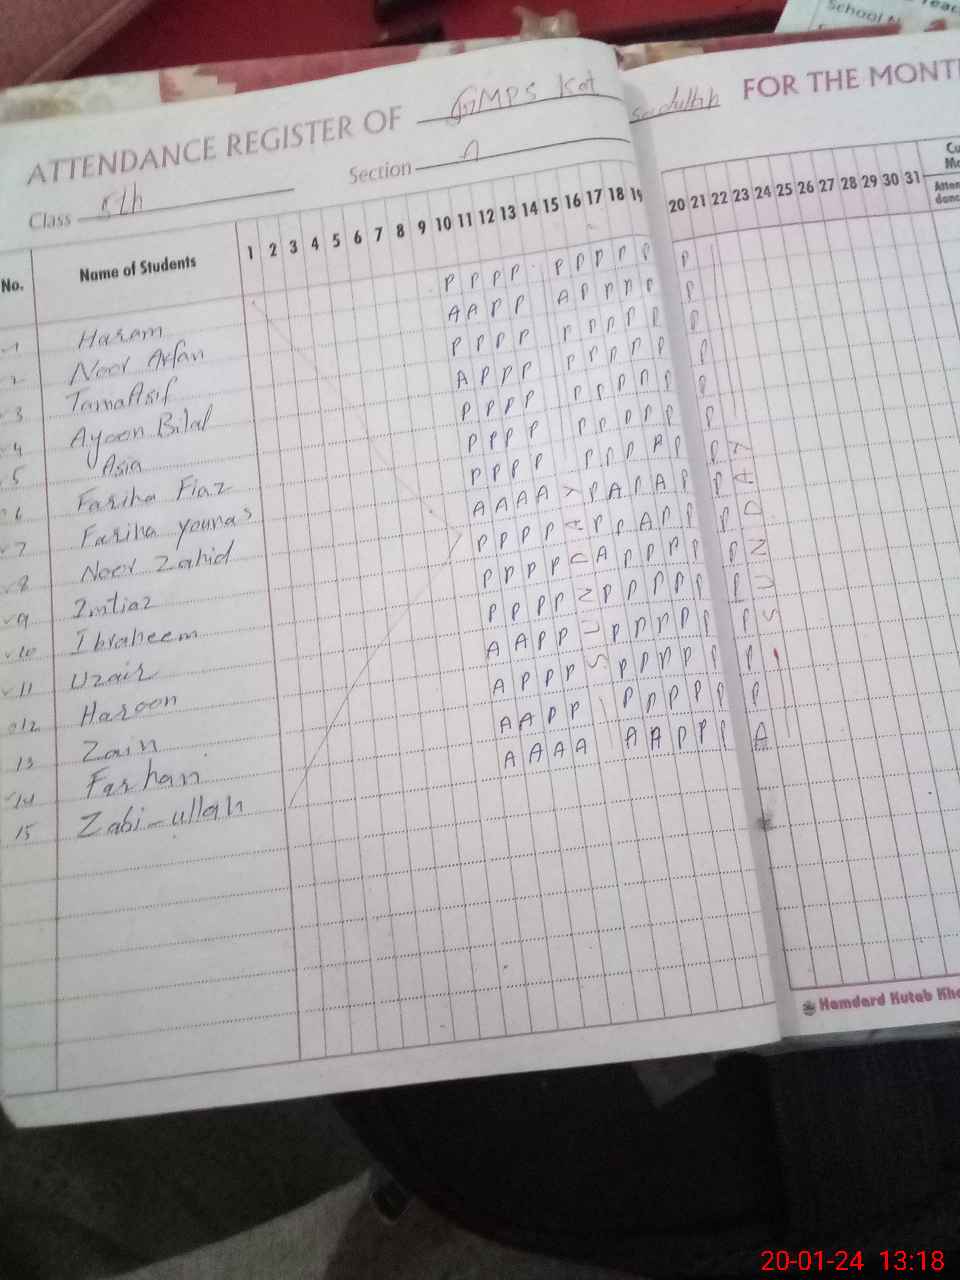 School
Teac
ATTENDANCE REGISTER OF GMPS Kot
FOR THE MONT
Class 5th Section A
No. Name of Students 1 2 3 4 5 6 7 8 9 10 11 12 13 14 15 16 17 18 19 20 21 22 23 24 25 26 27 28 29 30 31
Cu
Mo
Atten
danc
1 Haram P P P P P P P P P P
2 Noor Arfan A A P P A P P P P P
3 Tamafisif P P P P P P P P P P
4 Ayoon Bilal A P P P P P P P P P
5 Asia P P P P P P P P P P
6 Fariha Fiaz P P P P P P P P P P
7 Fariha younas P P P P P P P A P P
8 Noor Zahid A A A A P A P A P P
9 Imtiaz P P P P P P A P P P
10 Ibraheem P P P P A P P P P P
11 Uzair P P P P P P P P P P
12 Haroon A A P P P P P P P P
13 Zain A P P P P P P P P P
14 Farhan A A P P P P P P P P
15 Zabi-ullah A A A A A A P P P A
SUNDAY
SUNDAY
Hamdard Kutab Kha
20-01-24 13:18